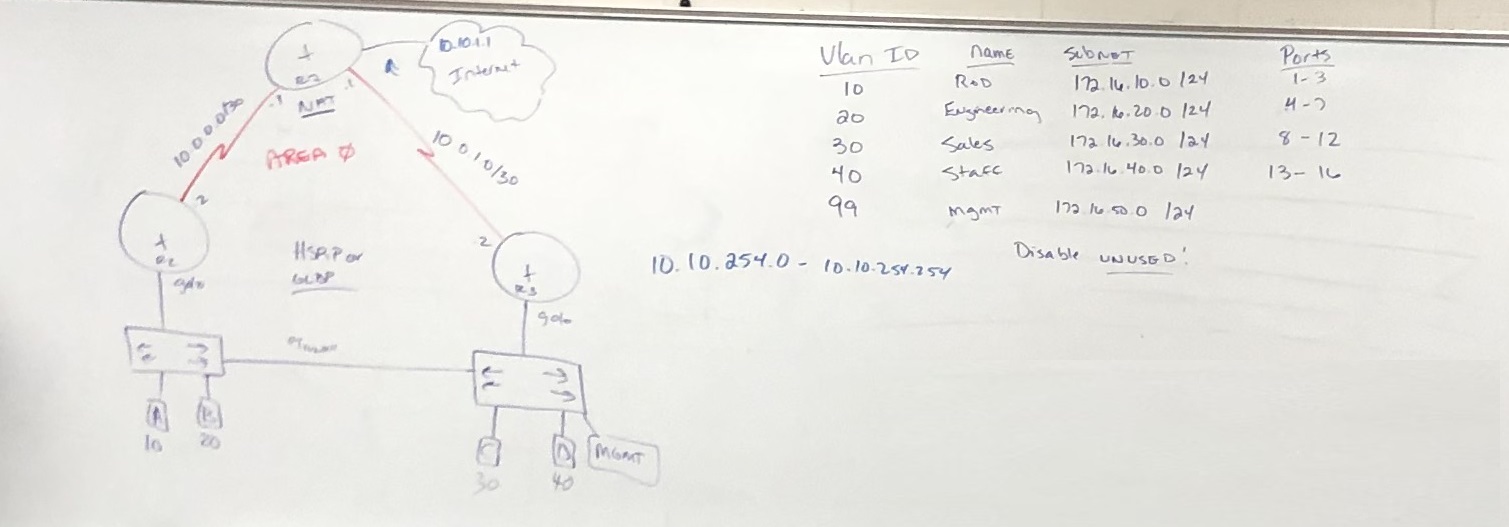 10.10.1.1
Internet
R2
.1
.1
NAT
10.0.0.0/30
AREA Ø
10.0.1.0/30
2
2
HSRP or
GLBP
R3
g0/0
g0/0
A
B
10
20
C
D
30
40
MGMT
Vlan ID Name SubNET Ports
10 R&D 172.16.10.0 /24 1-3
20 Engineering 172.16.20.0 /24 4-7
30 Sales 172.16.30.0 /24 8-12
40 Staff 172.16.40.0 /24 13-16
99 MgmT 172.16.50.0 /24
10.10.254.0 - 10.10.254.254
Disable UNUSED!